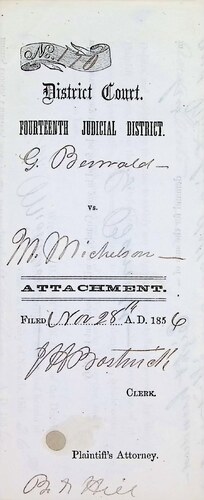 No. 178
District Court.
FOURTEENTH JUDICIAL DISTRICT.
G. Berwald
vs.
M. Michelson
ATTACHMENT.
FILED Nov 28th A. D. 1856
J H Bostwick
CLERK.
Plaintiff's Attorney.
Hill